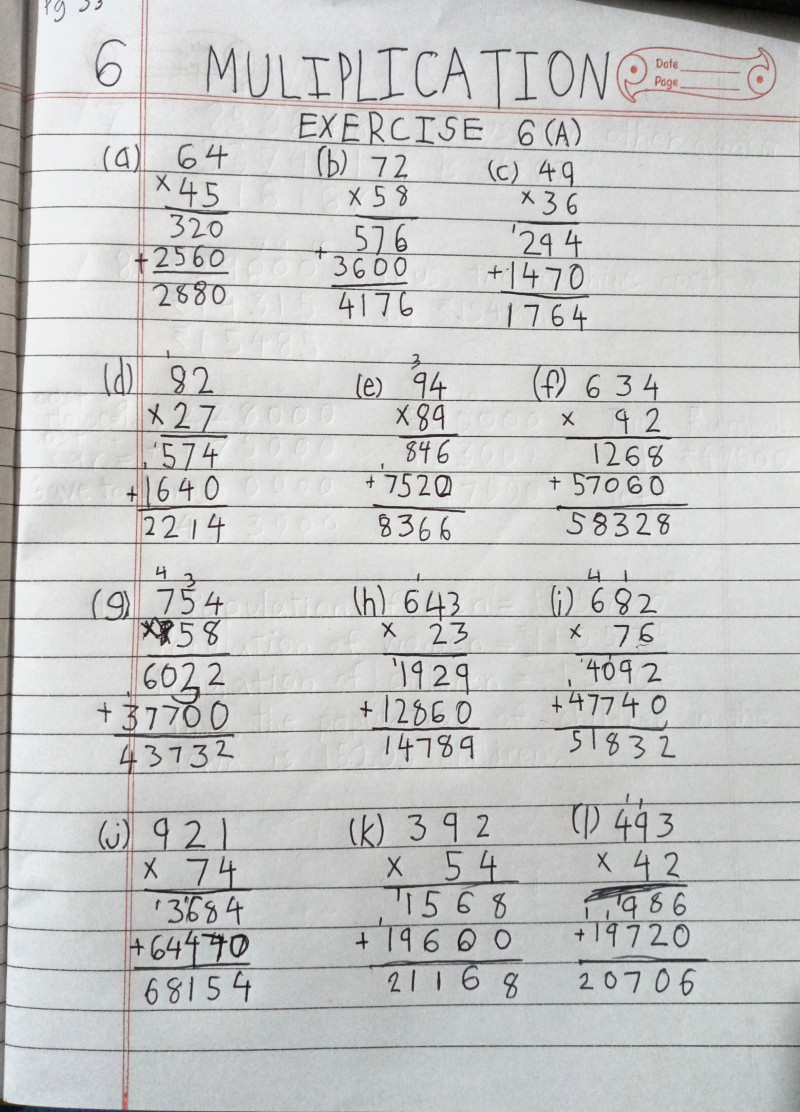 Pg 53
6 MULIPLICATION
Date
Page
EXERCISE 6(A)
(a) 64 (b) 72 (c) 49
×45 ×58 ×36
320 576 294
+2560 +3600 +1470
2880 4176 1764
(d) 82 (e) 94 (f) 634
×27 ×89 × 92
574 846 1268
+1640 +7520 +57060
2214 8366 58328
(g) 754 (h) 643 (i) 682
×58 × 23 × 76
6032 1929 4092
+37700 +12860 +47740
43732 14789 51832
(j) 921 (k) 392 (l) 493
× 74 × 54 × 42
3684 1568 986
+64470 +19600 +19720
68154 21168 20706